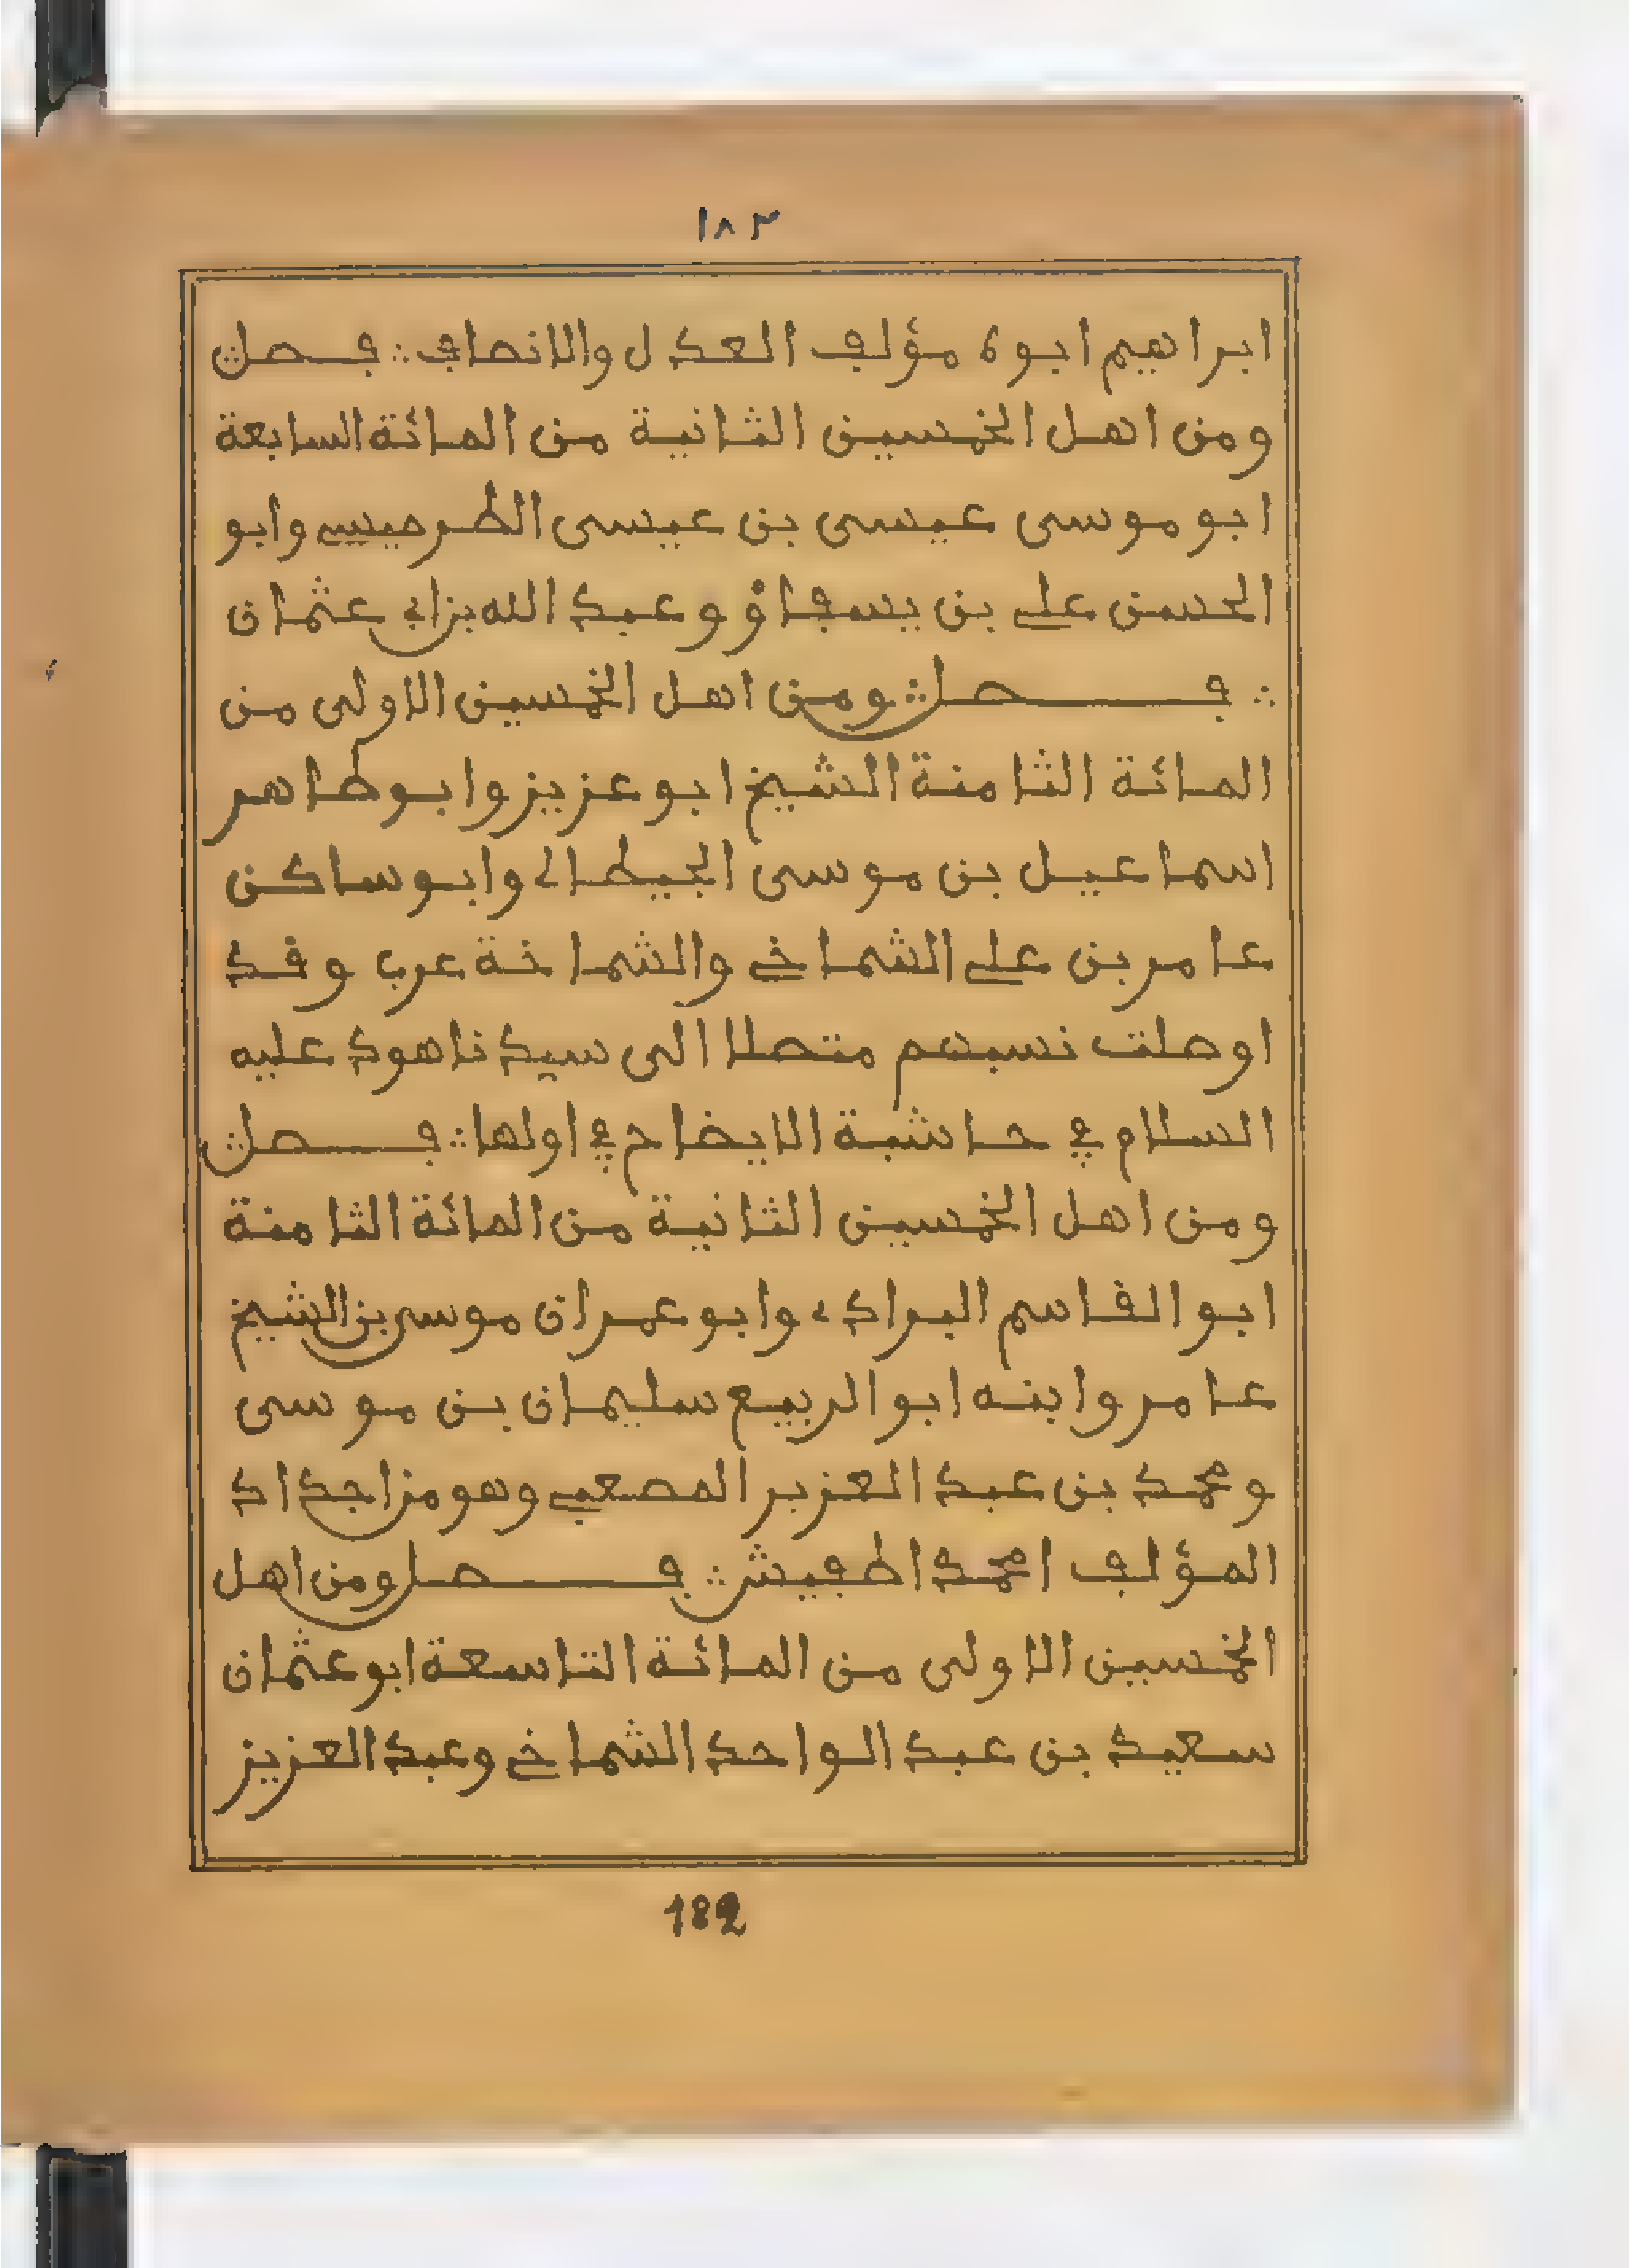 ١٨٣
ابراهيم ابوه مؤلف العدل والانصاف ∴ فصل ∴
ومن اهل الخمسين الثانية من المائة السابعة
ابو موسى عيسى بن عيسى الطرميسي وابو
الحسن علي بن يسفاؤ وعبد الله بن ابي عثمان
∴ فصل ∴ ومن اهل الخمسين الاولى من
المائة الثامنة الشيخ ابو عزيز وابو طاهر
اسماعيل بن موسى الجيطالي وابو ساكن
عامر بن علي الشماخي والشماخة عرب وقد
اوصلت نسبهم متصلا الى سيدنا هود عليه
السلام في حاشية الايضاح في اولها ∴ فصل ∴
ومن اهل الخمسين الثانية من المائة الثامنة
ابو القاسم البرادي وابو عمران موسى بن الشيخ
عامر وابنه ابو الربيع سليمان بن موسى
ومحمد بن عبد العزيز المصعبي وهو من اجداد
المؤلف امحمد اطفيش ∴ فصل ومن اهل
الخمسين الاولى من المائة التاسعة ابو عثمان
سعيد بن عبد الواحد الشماخي وعبد العزيز
182